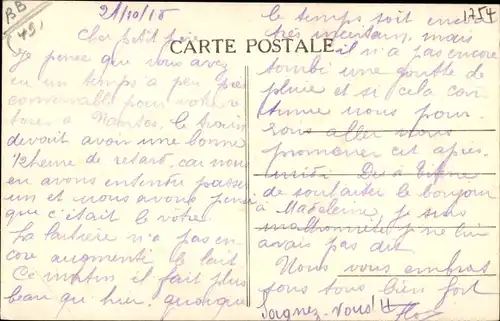 BB
491
21/10/15
1754
CARTE POSTALE
Cher petit père
Je pense que vous avez
eu un temps à peu près
convenable pour votre
à Nantes. le train
devait avoir une bonne
12heure de retard, car nous
en avons entendu passer
un et nous avons pensé
que c'était le votre.
La laitière n'a pas en-
core augmenté le lait
Ce matin il fait plus
beau qu'hier, quoique
le temps soit encore
très incertain, mais
il n'a pas encore
tombé une goutte de
pluie et si cela con-
tinue nous pour-
rons aller nous
promener cet après-
midi. à
de souhaiter le bonjour
à Madeleine, je suis
malhonnête je ne lui
avais pas dit
Nous vous embras
sons tous bien fort
Soignez-vous!!